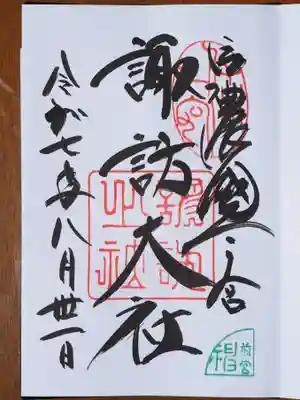 信濃國一之宮
諏訪大社
令和七年八月卅一日
諏訪
之社
前宮